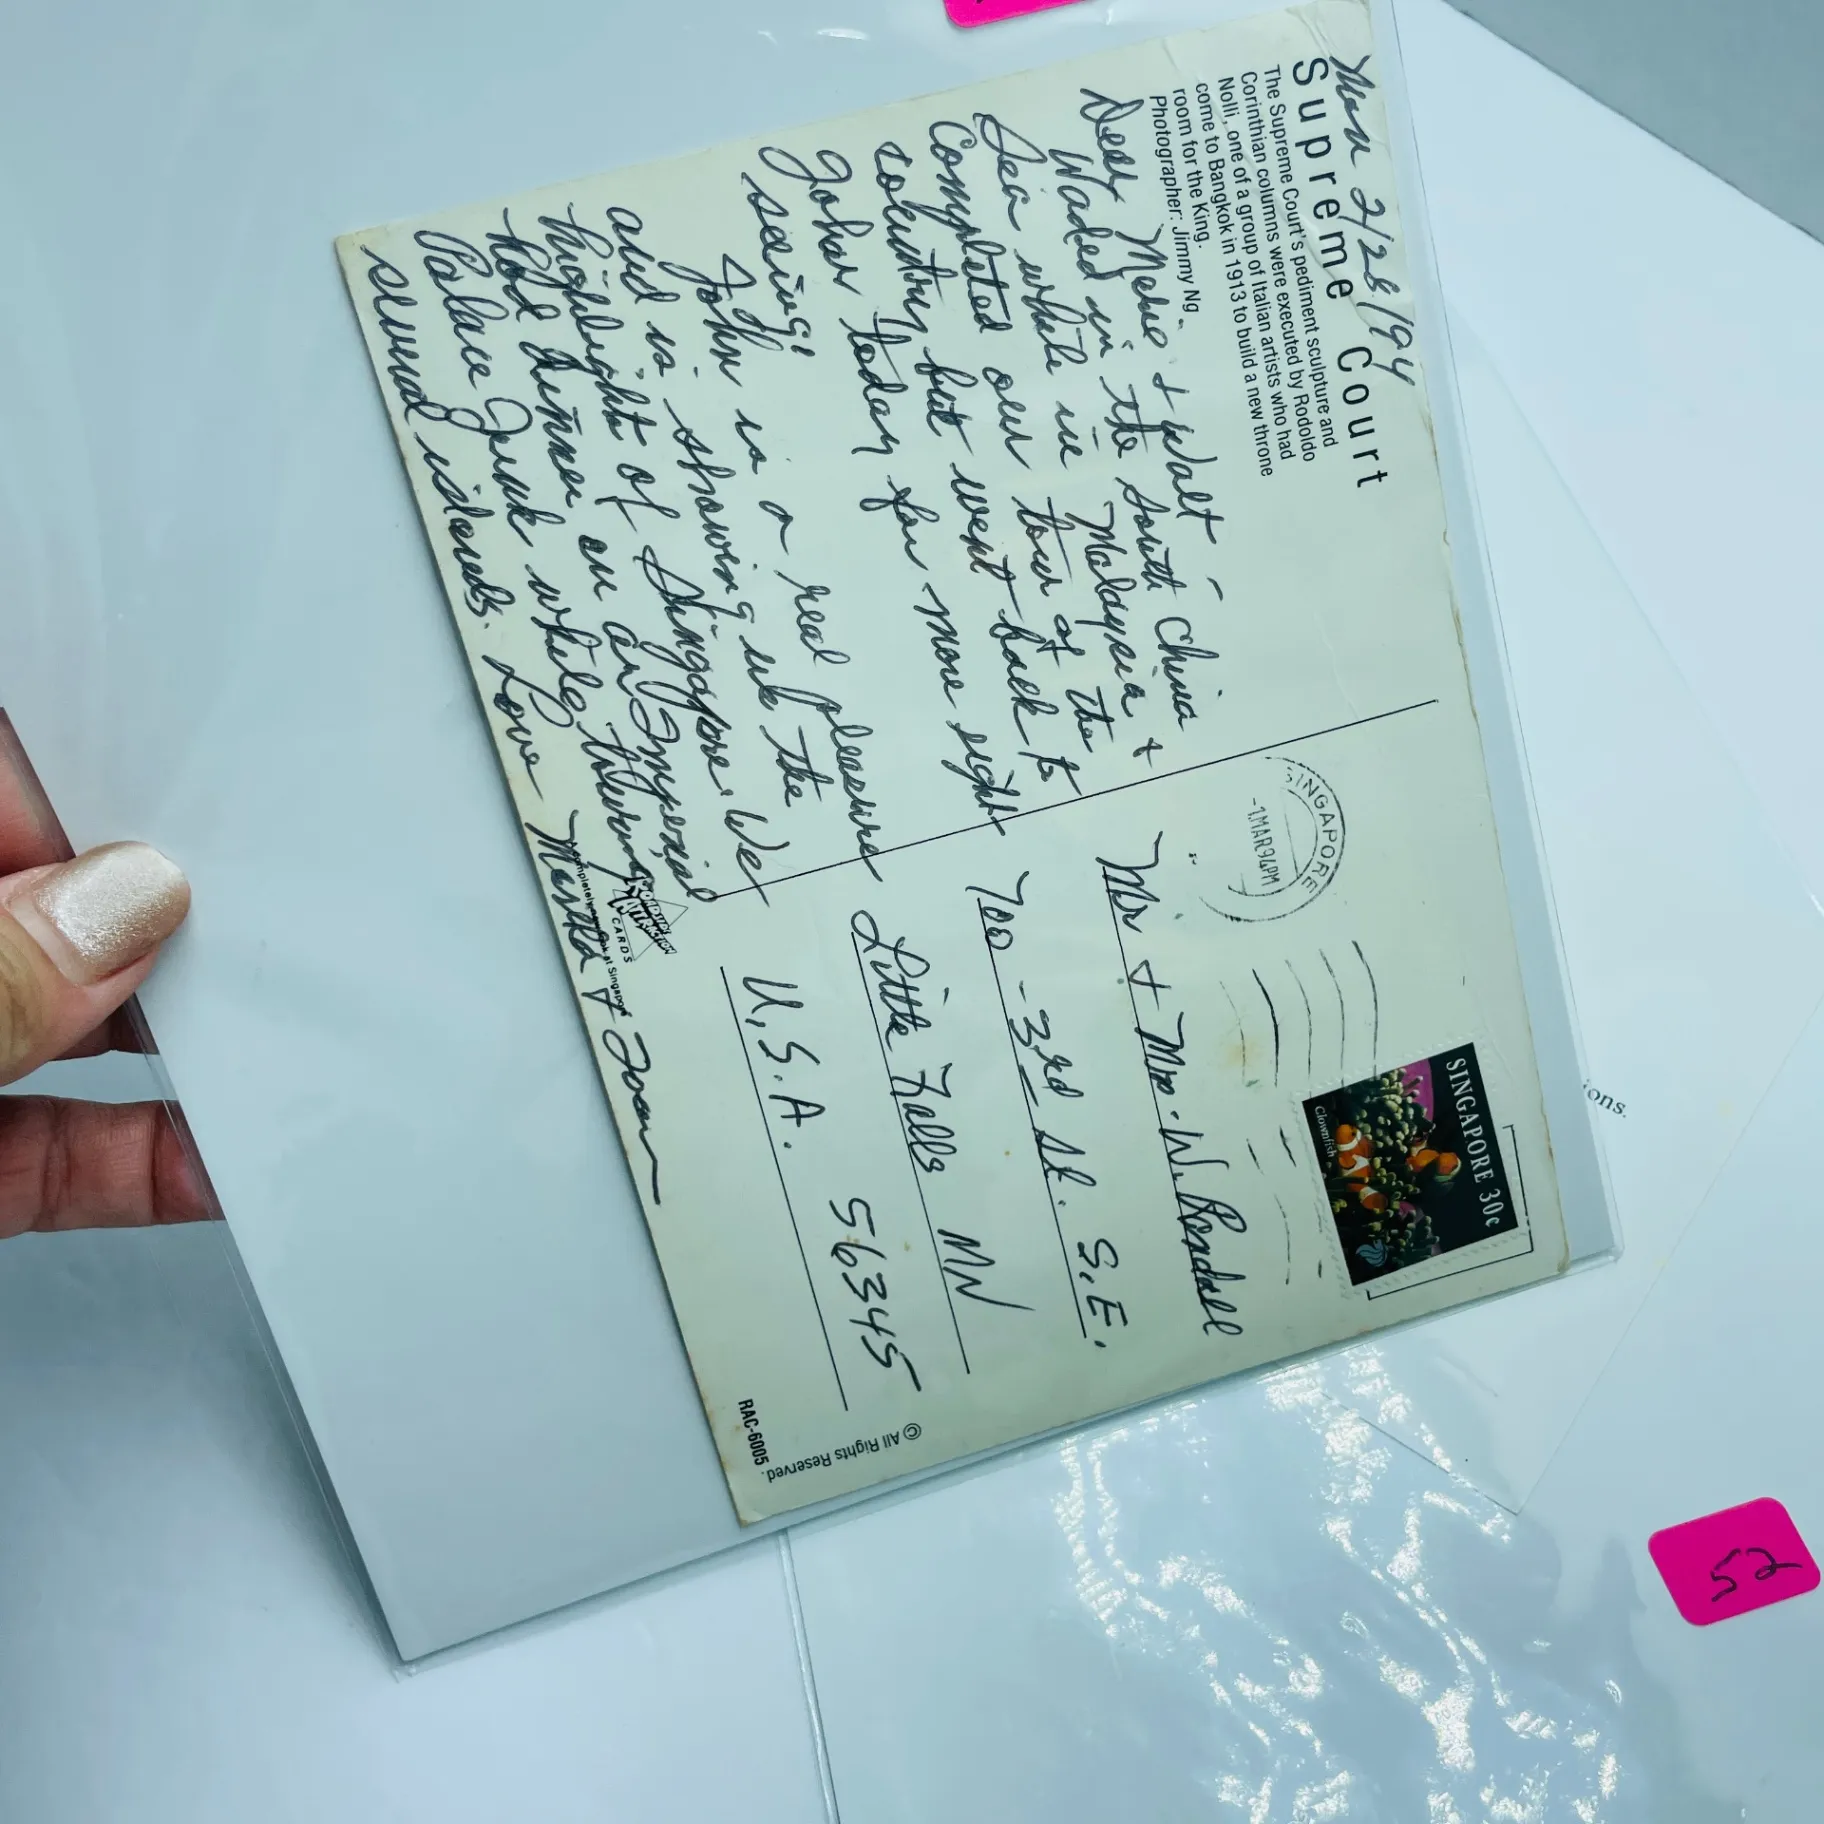 Mon 2/28/94
Supreme Court
The Supreme Court's pediment sculpture and
Corinthian columns were executed by Rodoldo
Nolli, one of a group of Italian artists who had
come to Bangkok in 1913 to build a new throne
room for the King.
Photographer: Jimmy Ng
Dear + Walt -
Waded in the South China
Sea while in Malaysia +
Completed our tour of the
country but went back to
Johor today for more sight
seeing.
John is a real pleasure
and is showing us the
highlight of Singapore. We
had dinner on an Imperial
Palace Junk while touring
several islands. Love + Tom
SINGAPORE
-1MAR94PM
SINGAPORE 30c
Clownfish
Mr + Mrs. W. Randall
700 - 3rd St. S.E.
Little Falls MN
U.S.A. 56345
CARDS
© All Rights Reserved.
RAC-6005
ons.
52